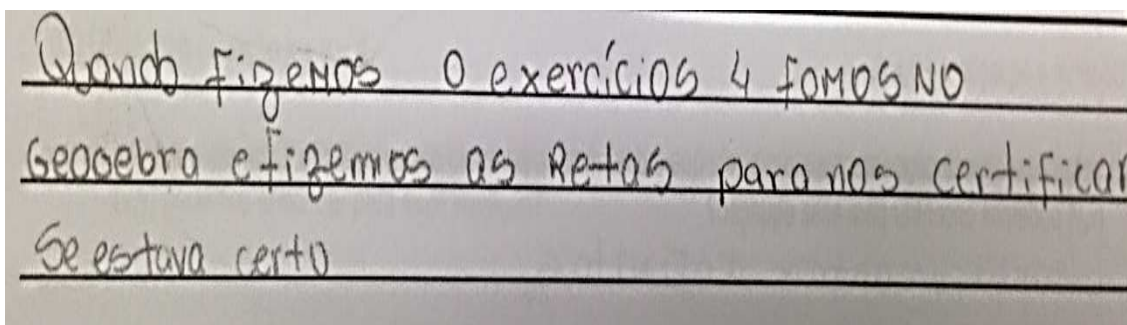 Quando fizemos o exercícios 4 fomos no
Geogebra e fizemos as Retas para nos certificar
Se estava certo